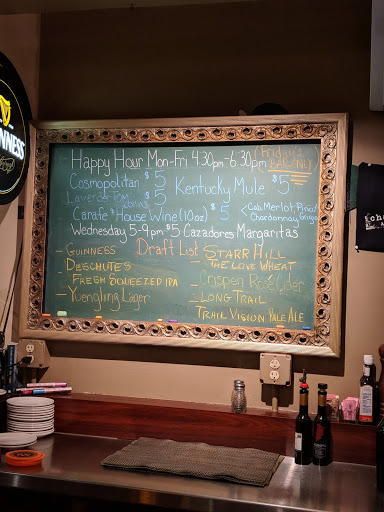 GUINNESS
Happy Hour Mon-Fri 4:30pm-6:30pm (Friday's
BAR ONLY)
Cosmopolitan $5 Kentucky Mule $5
Lavender
Carafe House Wine (10oz) $5 <Cab, Merlot, Pinot
Chardonnay Grigio
Wednesday 5-9pm $5 Cazadores Margaritas
Draft List
- GUINNESS
- DESCHUTES
FRESH SQUEEZED IPA
- Yuengling Lager
STARR HILL
THE LOVE WHEAT
- Crispen Rose Cider
- LONG TRAIL
TRAIL VISION PALE ALE